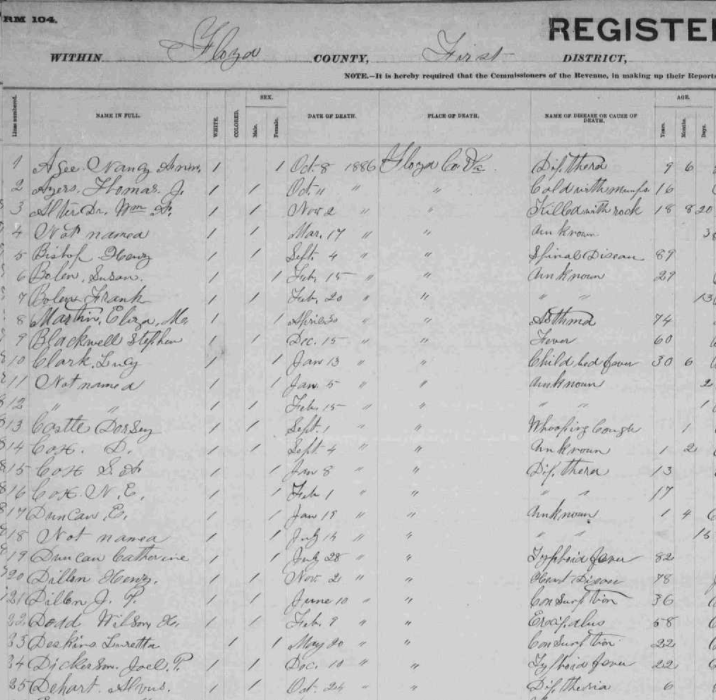 RM 104.
REGISTE
WITHIN Floyd COUNTY, First DISTRICT,
NOTE.—It is hereby required that the Commissioners of the Revenue, in making up their Report
Lines numbered. NAME IN FULL. WHITE. COLORED. SEX. Male. Female. DATE OF DEATH. PLACE OF DEATH. NAME OF DISEASE OR CAUSE OF DEATH. AGE. Years. Months. Days.
1 Agee Nancy Ann 1 1 Oct. 8 1886 Floyd Co. Va. Dif. thera 9 6
2 Ayers, Thomas J. 1 1 Oct 11 " " " Cold with mumps 16
3 Wm 1 1 Nov 2 " " " Killed with rock 18 8 20
4 Not named 1 1 Mar. 17 " " " Unknown
5 Bishop Henry 1 1 Sept. 4 " " " Spinal Disease 89
6 Bolen, Susan. 1 1 Feb. 15 " " " Unknown 29
7 Bolen, Frank 1 1 Feb. 20 " " " " " 13
8 Martin, Eliza, 1 1 April " " " Asthma 74
9 Blackwell Stephen 1 1 Dec. 15 " " " Fever 60
10 Clark, Lucy 1 1 Jan 13 " " " Child bed fever 30 6
11 Not named 1 1 Jan. 5 " " " Unknown 2
12 " " 1 1 Feb. 15 " " " " " 1
13 Castle Dorsey 1 1 Sept. 1 " " " Whooping Cough 1
14 Cox D. 1 1 Sept 4 " " " Unknown 1 2
15 Cox 1 1 Jan 8 " " " Dif. thera 13
16 Cox N. E. 1 1 Feb 1 " " " " " 17
17 Duncan, E. 1 1 Jan 19 " " " Unknown 1 4
18 Not named 1 1 July 14 " " " " " 15
19 Duncan Catherine 1 1 July 28 " " " Typhoid fever 82
20 Dillen Henry. 1 1 Nov. 2 " " " Heart Disease 78
21 Dillen J. P. 1 1 June 10 " " " Consumption 36
22 Dodd Wilson 1 1 Feb. 9 " " " Ericipalus 58
23 Deskins Luretta 1 1 May 20 " " " Consumption 22
24 Dickerson, Joel P. 1 1 Dec. 10 " " " Typhoid fever 22
25 Dehart 1 1 Oct. 24 " " " Diftheria 6